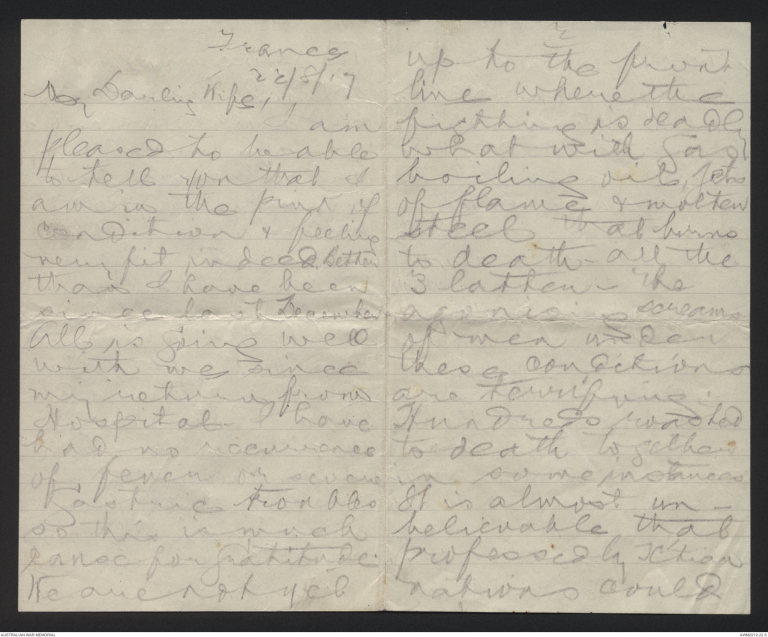 France
22/8/17
My Darling Wife,
I am
pleased to be able
to tell you that I
am in the pink of
condition & feeling
very fit indeed. Better
than I have been
since last December
All is going well
with me since
my return from
Hospital - I have
had no recurrence
of fever or severe
gastric troubles
so this is much
cause for gratitude.
We are not yet
2
up to the front
line where the
fighting is deadly
what with gas
boiling oil, jets
of flame & molten
steel that burns
to death - all the
3 latter - The
agonising screams
of men under
these conditions
are terrifying.
Hundreds roasted
to death together
in some instances
It is almost un-
believable that
professedly Xtian
nations could
AUSTRALIAN WAR MEMORIAL